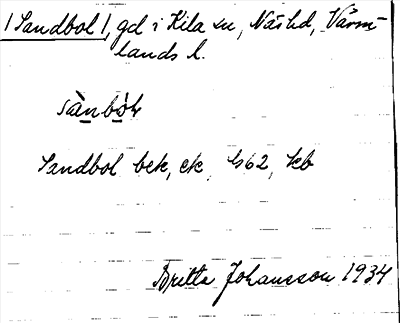 /Sandbol/, gd i Kila sn, Näs hd, Värm-
lands l.
Sandbol bek, ek, G62, kb
Britta Johansson 1934